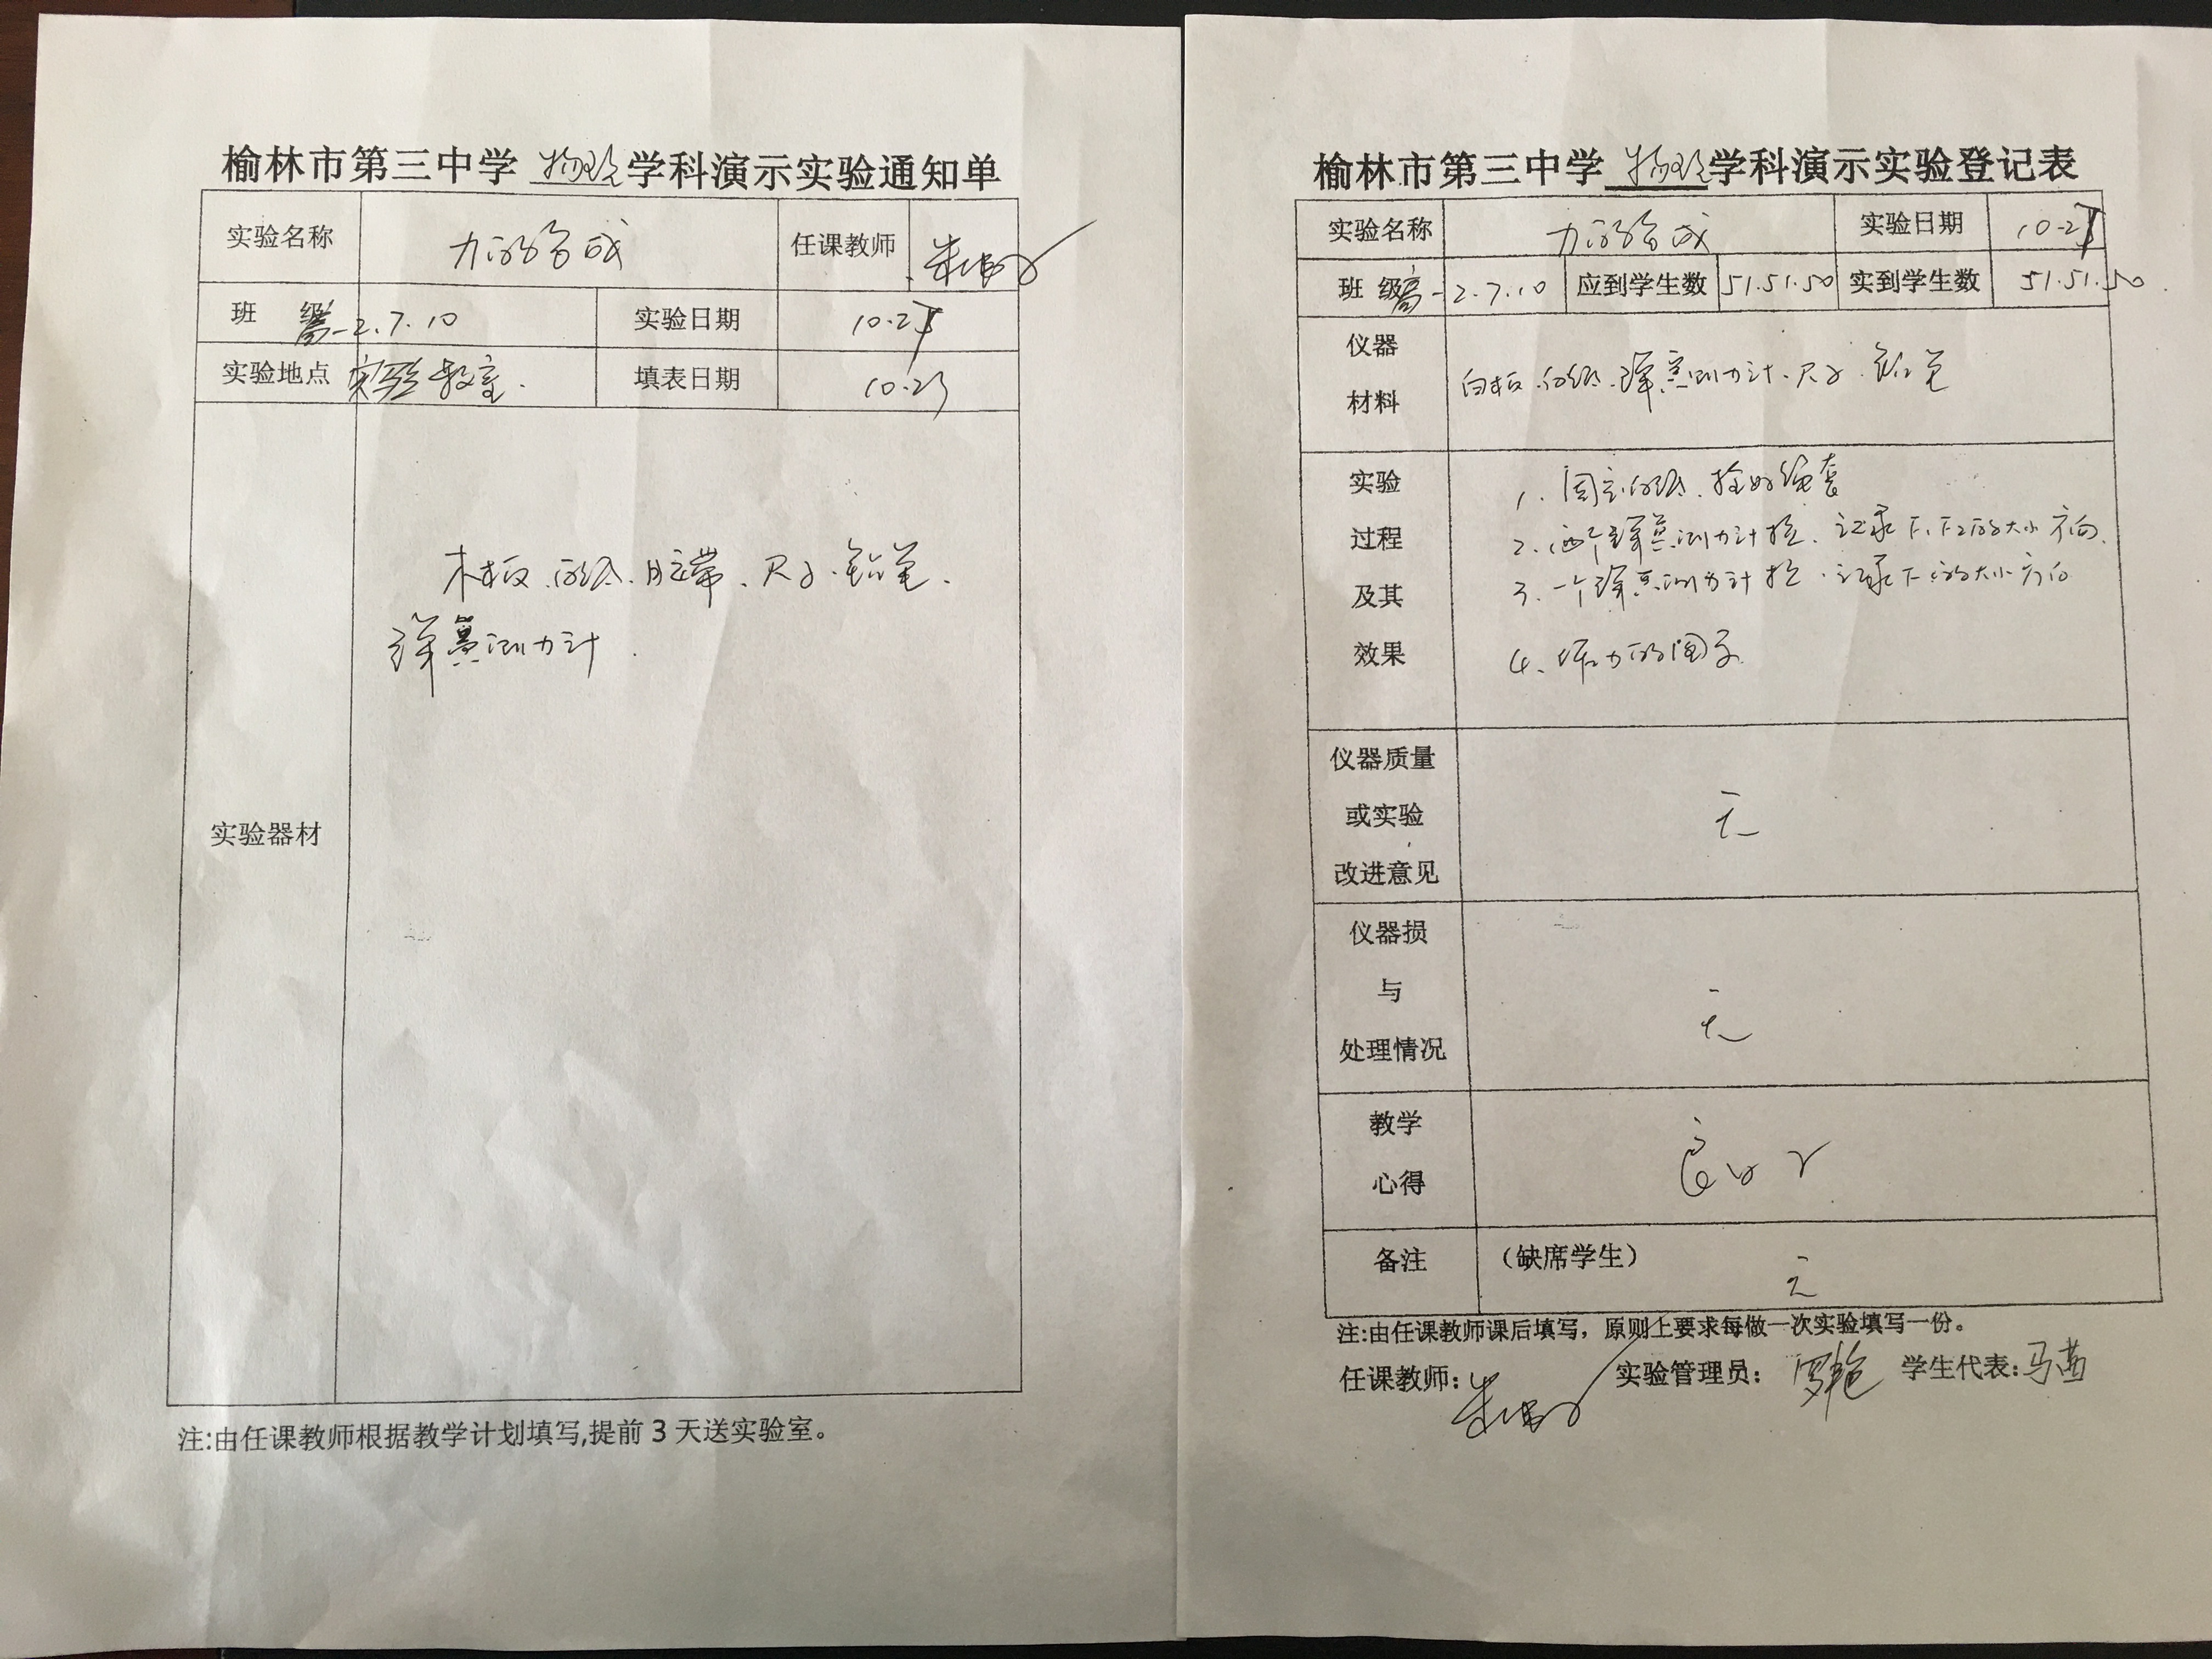 榆林市第三中学 物理 学科演示实验通知单
实验名称 力的合成 任课教师
班 级 高一2.7.10 实验日期 10.25
实验地点 实验教室. 填表日期 10.23
实验器材
木板.白纸.胶带.尺子.铅笔.
弹簧测力计.
注:由任课教师根据教学计划填写,提前 3 天送实验室。
榆林市第三中学 物理 学科演示实验登记表
实验名称 力的合成 实验日期 10.25
班 级 高一2.7.10 应到学生数 51.51.50 实到学生数 51.51.50
仪器
材料
白纸.弹簧测力计.尺子.铅笔
实验
过程
及其
效果
1、固定白纸.拴好绳套
2、两个弹簧测力计拉.记录F1 F2的大小方向.
3、一个弹簧测力计拉.记录F的大小方向
4、作力的图示
仪器质量
或实验
改进意见
无
仪器损
与
处理情况
无
教学
心得
良好
备注 （缺席学生）
无
注:由任课教师课后填写，原则上要求每做一次实验填写一份。
任课教师: 实验管理员: 罗艳 学生代表: 马茜